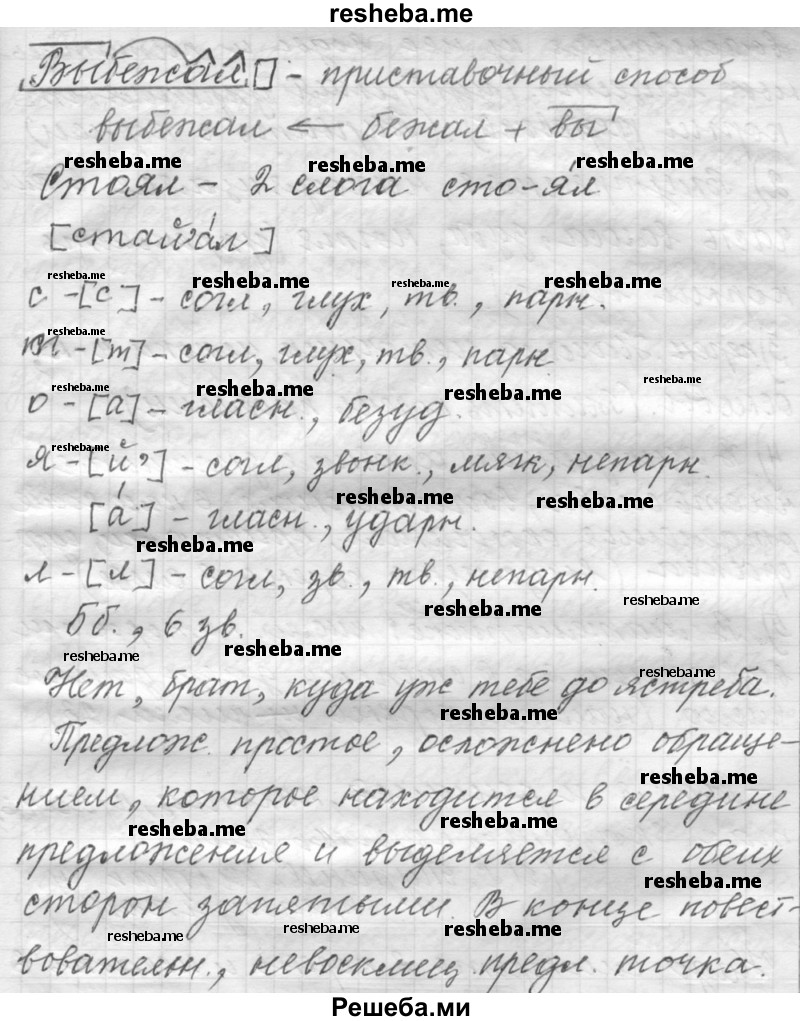 resheba.me
Выбежал - приставочный способ
выбежал ← бежал + вы
resheba.me resheba.me resheba.me
Стоял - 2 слога сто-ял
[стай'ал]
resheba.me resheba.me resheba.me resheba.me
с - [с] - согл, глух, тв., парн.
resheba.me
т - [т] - согл, глух, тв., парн.
resheba.me resheba.me resheba.me resheba.me
о - [а] - гласн., безуд.
resheba.me
я - [й'] - согл, звонк., мягк, непарн.
resheba.me resheba.me
[а́] - гласн., ударн.
resheba.me
л - [л] - согл, зв., тв., непарн.
resheba.me resheba.me
5б., 6 зв.
resheba.me resheba.me resheba.me
Нет, брат, куда уж тебе до ястреба.
resheba.me
Предлож. простое, осложнено обраще-
resheba.me
нием, которое находится в середине
resheba.me resheba.me
предложения и выделяется с обеих
resheba.me
сторон запятыми. В конце повест-
resheba.me resheba.me resheba.me
вователн., невосклиц. предл. точка.
Решеба.ми